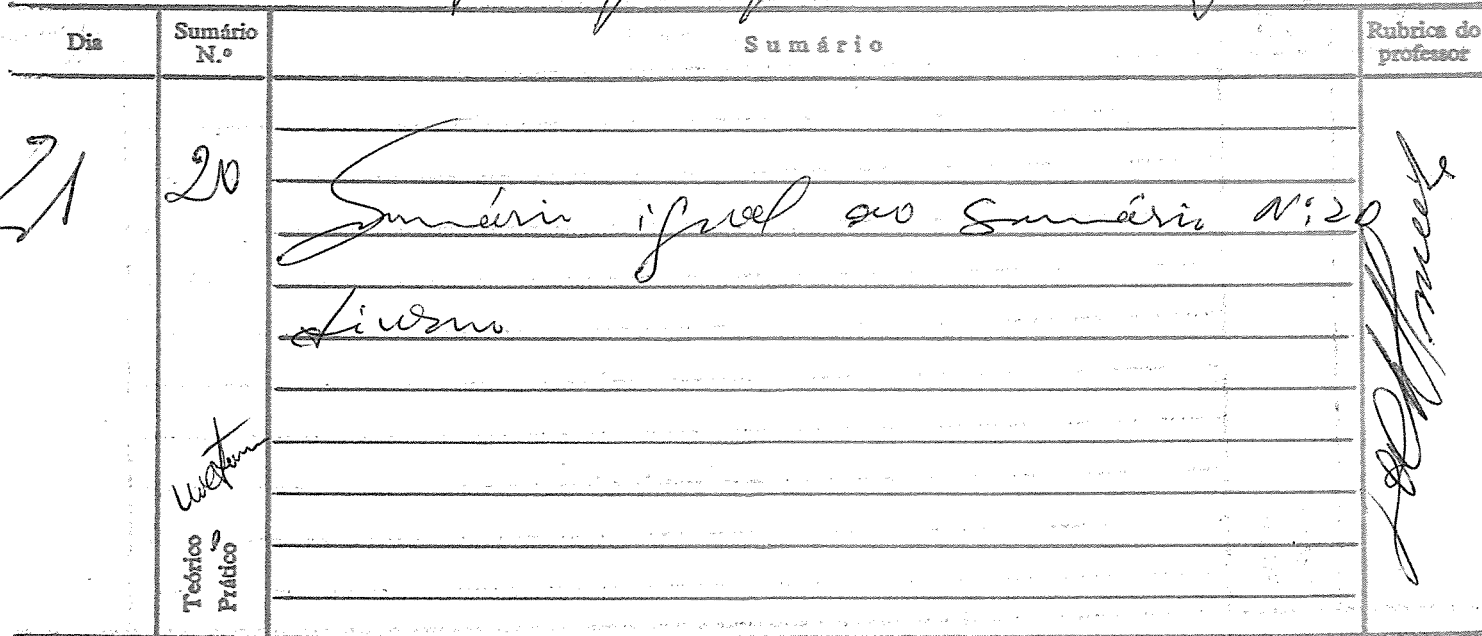 Dia
Sumário N.º
Sumário
Rubrica do professor
21
20
Sumário igual ao Sumário Nº 20
diurno
Teórico
Prático